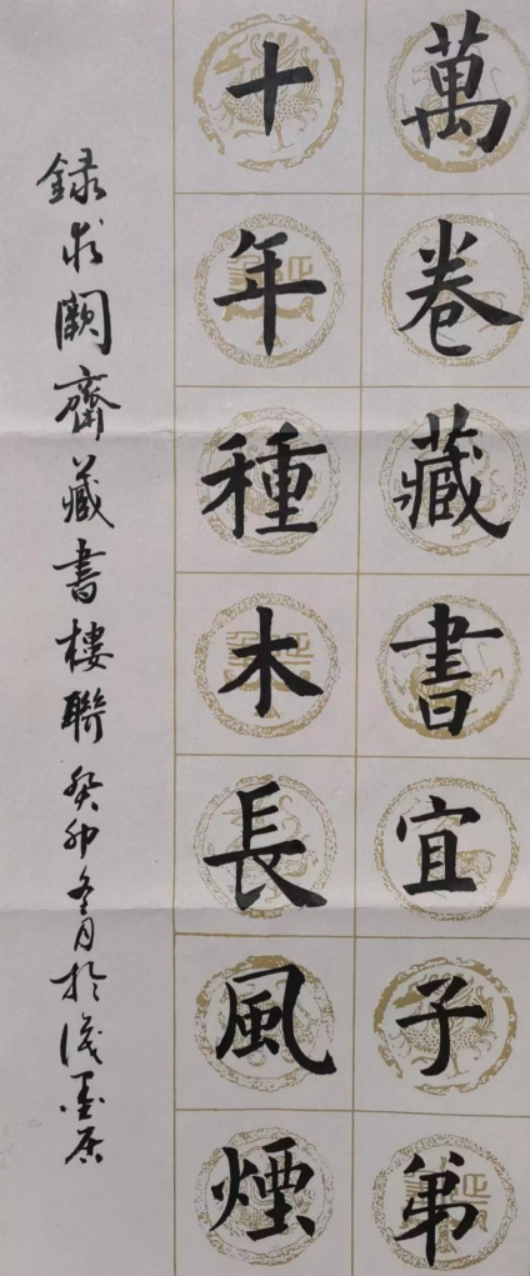 萬卷藏書宜子弟
十年種木長風煙
録求闕齋藏書樓聯癸卯冬月於淺墨居